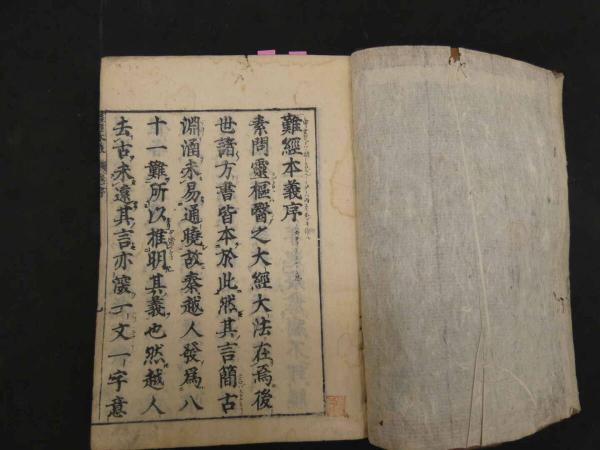 難經本義序
素問靈樞醫之大經大法在焉後
世諸方書皆本於此然其言簡古
淵涵未易通曉故秦越人發爲八
十一難所以推明其義也然越人
去古未遠其言亦深一文一字意